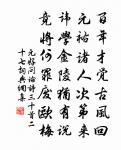 百年才覺古風回
元祐諸人次第來
諱學金陵猶有說
竟將何罪廢歐梅
元好問論詩三十首二
十七詞典網集